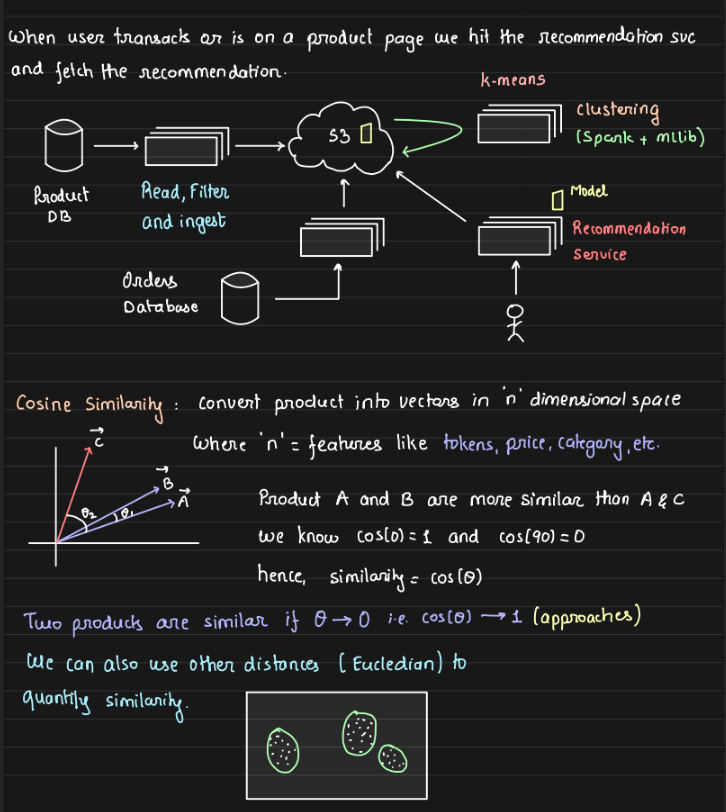 When user transacts or is on a product page we hit the recommendation svc
and fetch the recommendation.
k-means
S3
clustering
(Spark + mllib)
Product
DB
Read, Filter
and ingest
Model
Recommendation
Service
Orders
Database
Cosine Similarity : convert product into vectors in 'n' dimensional space
where 'n' = features like tokens, price, category, etc.
C
B
A
θ2
θ1
Product A and B are more similar than A & C
we know cos(0) = 1 and cos(90) = 0
hence, similarity = cos(θ)
Two products are similar if θ → 0 i.e. cos(θ) → 1 (approaches)
We can also use other distances (Eucledian) to
quantify similarity.